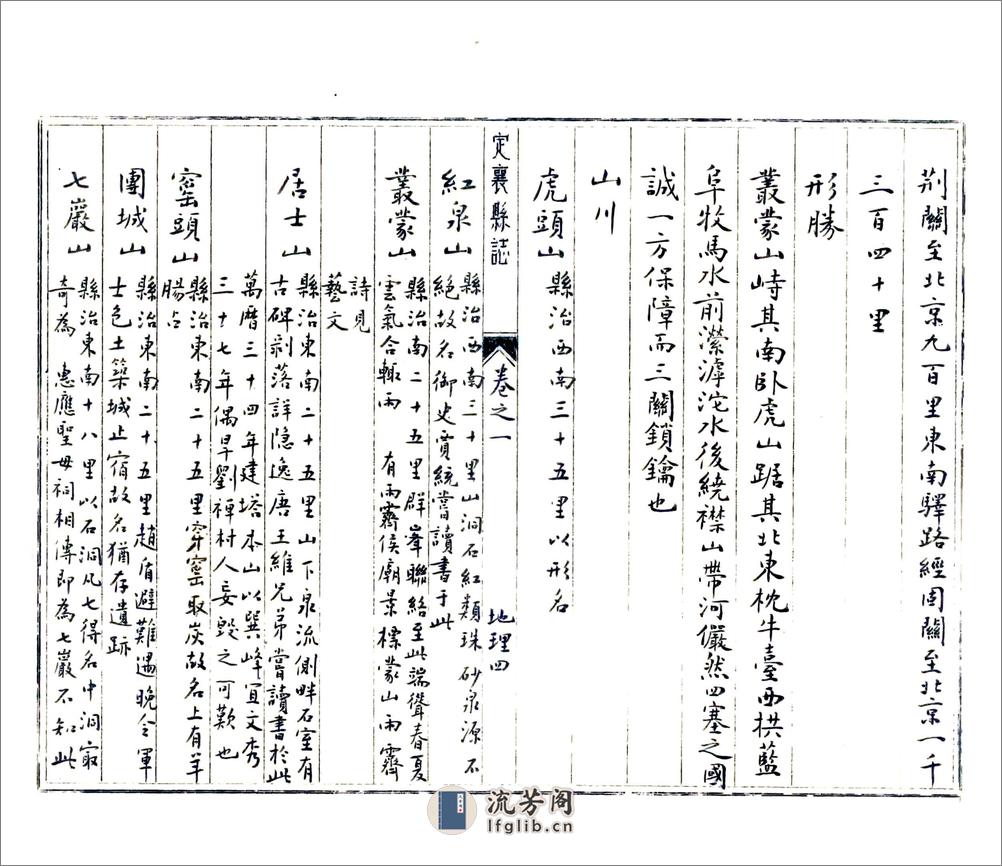 荆關至北京九百里東南驛路經固關至北京一千
三百四十里
形勝
叢蒙山峙其南卧虎山踞其北東枕牛臺西拱藍
阜牧馬水前瀠滹沱水後繞襟山帶河儼然四塞之國
誠一方保障而三關鎖鑰也
山川
虎頭山縣治西南三十五里以形名
定襄縣誌 卷之一 地理四
紅泉山縣治西南三十里山洞石紅類珠砂泉源不
絕故名御史賈統嘗讀書于此
叢蒙山縣治南二十五里群峯聯絡至此端聳春夏
雲氣合輙雨 有雨霽侯廟景標蒙山雨霽
詩見
藝文
居士山縣治東南二十五里山下泉流側畔石室有
古碑剥落詳隐逸唐王維兄弟嘗讀書於此
萬曆三十四年建塔本山以巽峰宜文秀
三十七年偶旱劉禪村人妄毀之可歎也
窰頭山縣治東南二十五里穿窰取炭故名上有羊
腸占
團城山縣治東南二十五里趙盾避難遇晚令軍
士色土築城止宿故名猶存遺跡
七巖山縣治東南十八里以石洞凡七得名中洞㝡
奇為 惠應聖母祠相傳即為七巖不知此
流芳阁
lfglib.cn